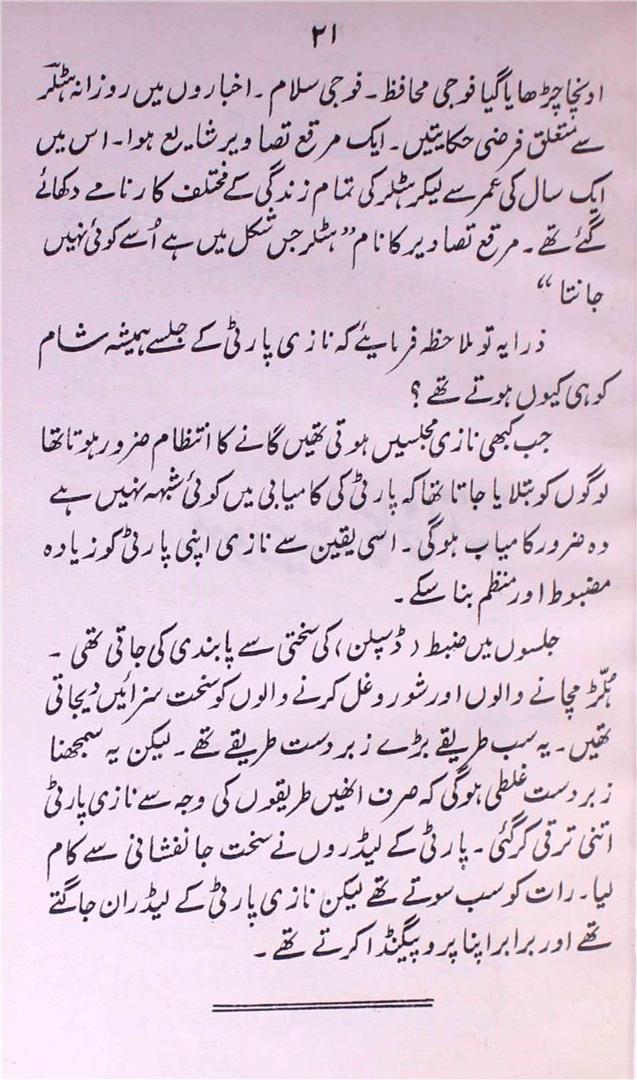 ۲۱
اونچا چڑھایا گیا فوجی محافظ۔ فوجی سلام۔ اخباروں میں روزانہ ہٹلر
سے متعلق فرضی حکایتیں۔ ایک مرقع تصاویر شایع ہوا۔ اس میں
ایک سال کی عمر سے لیکر ہٹلر کی تمام زندگی کے مختلف کارنامے دکھائے
گئے تھے۔ مرقع تصاویر کا نام ”ہٹلر جس شکل میں ہے اُسے کوئی نہیں
جانتا“
ذرا یہ تو ملاحظہ فرمایئے کہ نازی پارٹی کے جلسے ہمیشہ شام
کو ہی کیوں ہوتے تھے؟
جب کبھی نازی مجلسیں ہوتی تھیں گانے کا انتظام ضرور ہوتا تھا
لوگوں کو بتلایا جاتا تھا کہ پارٹی کی کامیابی میں کوئی شبہہ نہیں ہے
وہ ضرور کامیاب ہوگی۔ اسی یقین سے نازی اپنی پارٹی کو زیادہ
مضبوط اور منظم بنا سکے۔
جلسوں میں ضبط (ڈسپلن) کی سختی سے پابندی کی جاتی تھی۔
ہُلّڑ مچانے والوں اور شور و غل کرنے والوں کو سخت سزائیں دیجاتی
تھیں۔ یہ سب طریقے بڑے زبردست طریقے تھے۔ لیکن یہ سمجھنا
زبردست غلطی ہوگی کہ صرف انھیں طریقوں کی وجہ سے نازی پارٹی
اتنی ترقی کر گئی۔ پارٹی کے لیڈروں نے سخت جانفشانی سے کام
لیا۔ رات کو سب سوتے تھے لیکن نازی پارٹی کے لیڈران جاگتے
تھے اور برابر اپنا پروپیگنڈا کرتے تھے۔